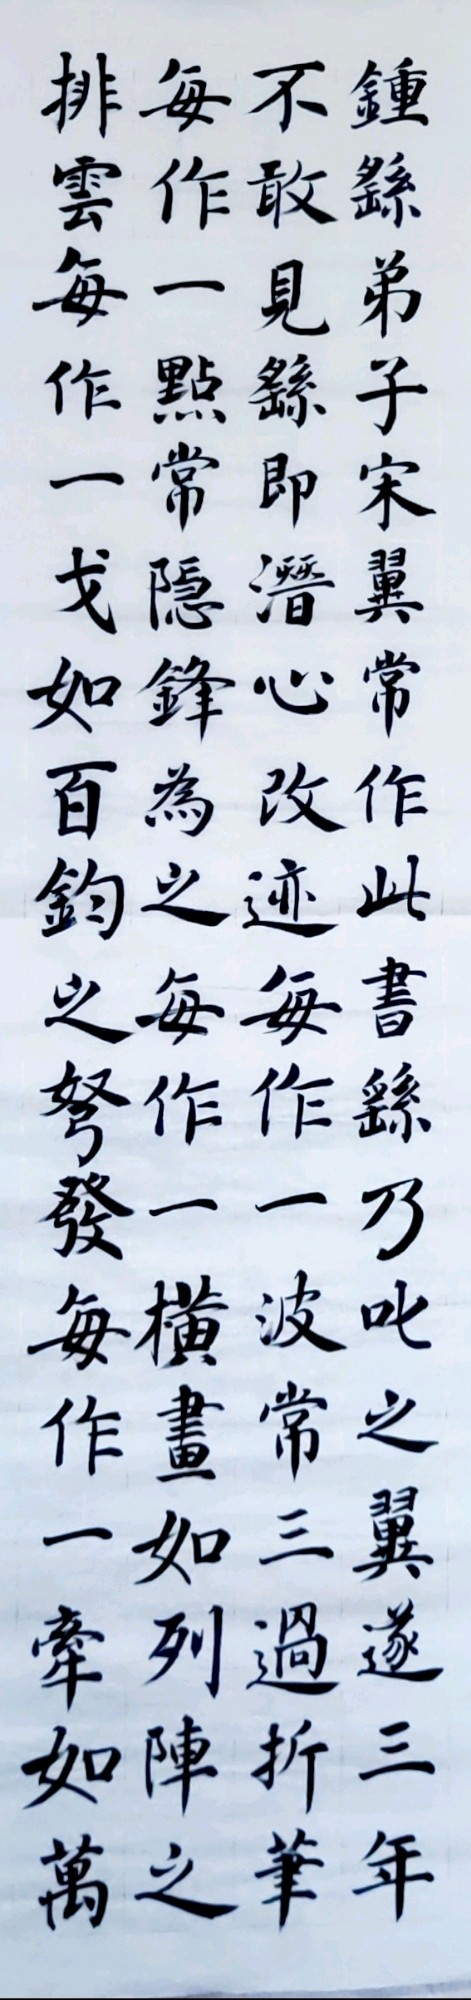 鍾繇弟子宋翼常作此書繇乃叱之翼遂三年
不敢見繇即潛心改迹每作一波常三過折筆
每作一點常隱鋒為之每作一橫畫如列陣之
排雲每作一戈如百鈞之弩發每作一牽如萬